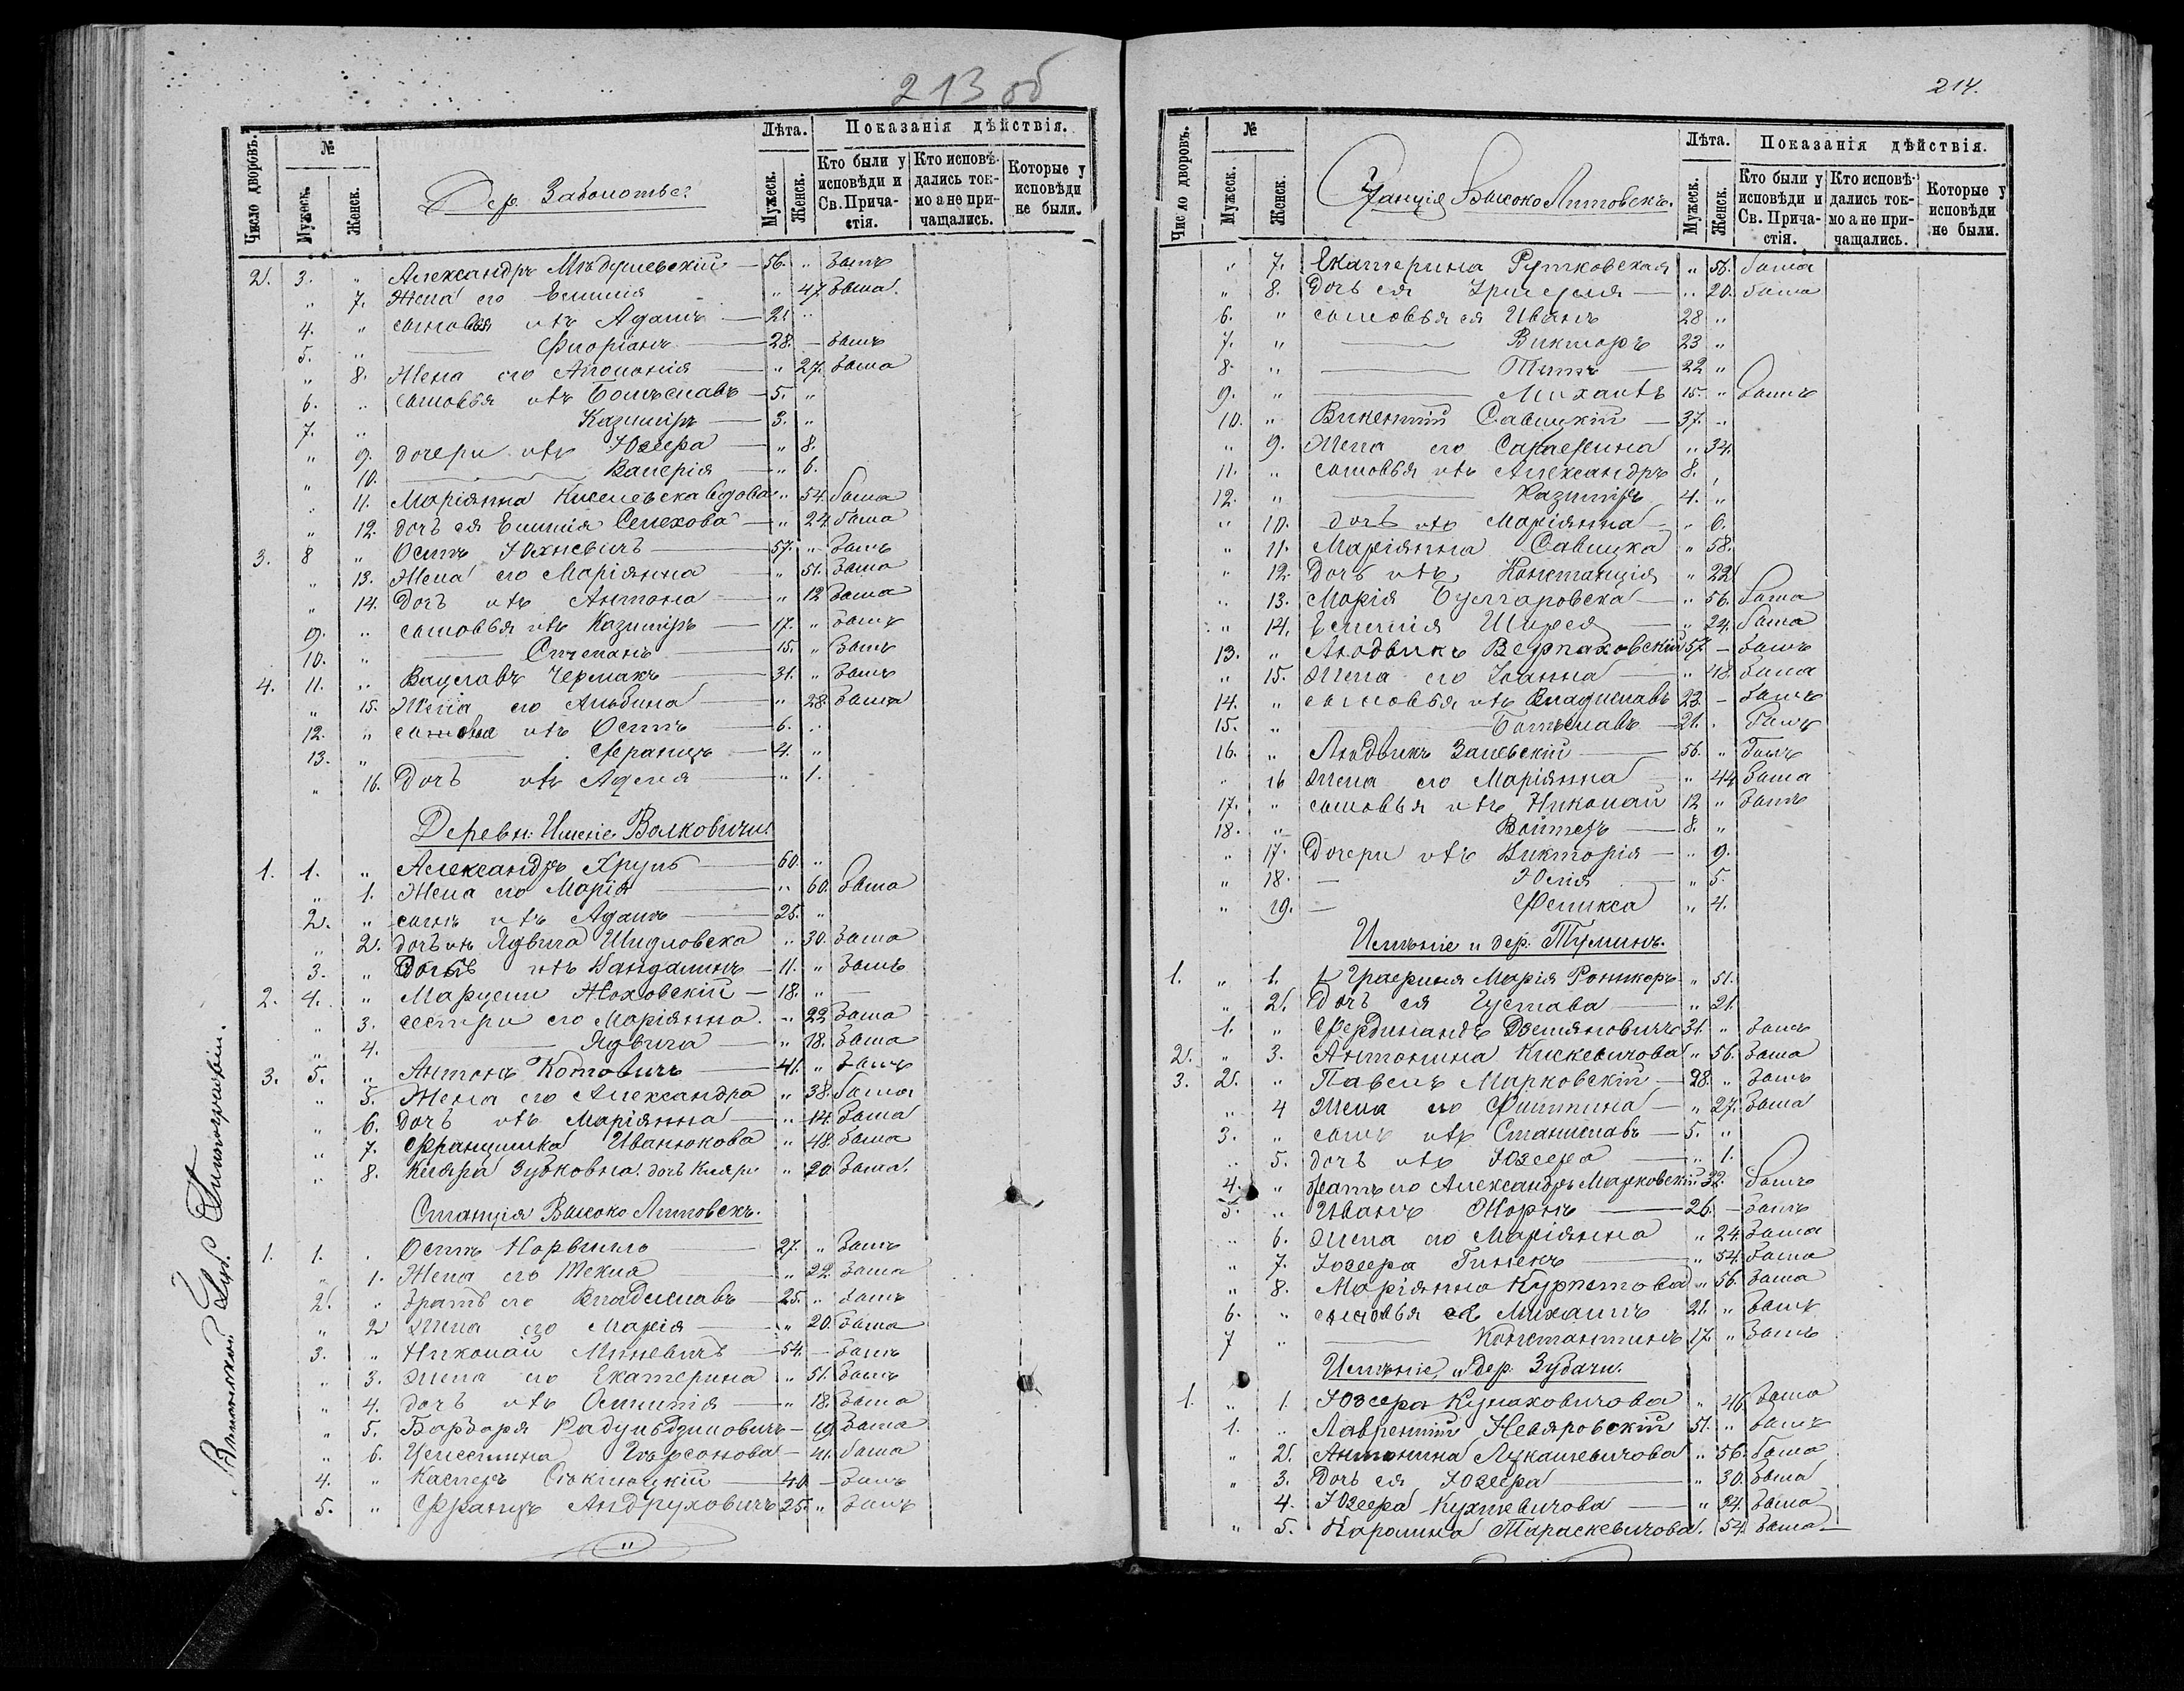 213 об
Число дворовъ.
№
Мужеск.
Женск.
Дер. Заболотье.
Лѣта.
Мужеск.
Женск.
Показанія дѣйствія.
Кто были у исповѣди и Св. Причастія.
Кто исповѣдались токмо а не причащались.
Которые у исповѣди не были.
2. 3. " Александръ — 56. " Былъ
" 7. Жена его Емилія " 47. Была
4. " сыновья ихъ Адамъ — 21 "
5. " — Флоріанъ — 28. — Былъ
" 8. Жена его Аполонія " 27. Была
6. " сыновья ихъ Болеславъ — 5. "
7. " Казиміръ — 3. "
" 9. дочери ихъ Юзефа — " 8.
" 10. — Валерія — " 6.
" 11. Маріянна вдова " 54. была
" 12. дочь ея Емилія — " 24. была
3. 8 " Осипъ Юхневичъ — 57. " Былъ
" 13. Жена его Маріянна — " 51. Была
" 14. Дочь ихъ Антона — " 12 Была
9. " сыновья ихъ Казиміръ — 17. " Былъ
10. " — Стефанъ — 15. " Былъ
4. 11. " Вацлавъ Чермакъ — 31. " Былъ
" 15. Жена его Альбина — " 28. Была
12. " сыновья ихъ Осипъ — 6. "
13. " — Францъ — 4. "
" 16. Дочь ихъ Аделя — " 1.
Деревн: Имѣніе Волковичи.
1. 1. " Александръ Хруль — 60. "
" 1. Жена его Марія — " 60. Была
2. " сынъ ихъ Адамъ — 25. "
" 2. дочь ихъ Ядвига Шидловска " 30. Была
3. " ихъ — 11. " Былъ
2. 4. " Марцели Жоховскій — 18. " —
" 3. сестры его Маріянна — " 22 Была
" 4. — Ядвига — " 18. Была
3. 5. " Антонъ Котовичъ — 41. " Былъ
" 5. Жена его Александра " 38. была
" 6. дочь ихъ Маріянна — " 14. Была
" 7. Францишка Иванюкова " 48. Была
" 8. Кляра Зубковна. дочь " 20. Была.
Станція Высоко Литовскъ.
1. 1. . Осипъ — 27. " Былъ
" 1. Жена его Текла — " 22. Была
2. " братъ его Владиславъ — 25. " Былъ
" 2 жена его Марія — " 20. Была
3. " Николай Миневичъ — 54. — Былъ
" 3. жена его Екатерина " 51. Былъ
" 4. дочь ихъ — " 18. Была
" 5. Барбара — Была
" 6. Целестина — 41. была
4. " Касперъ — 40 — Былъ
5. " Францъ Андруховичъ 25. " Былъ
Виленской Губ. Типографіи.
214.
Число дворовъ.
№
Мужеск.
Женск.
Станція Высоко Литовскъ.
Лѣта.
Мужеск.
Женск.
Показанія дѣйствія.
Кто были у исповѣди и Св. Причастія.
Кто исповѣдались токмо а не причащались.
Которые у исповѣди не были.
" 7. Екатерина Рутковская " 58. была
" 8. Дочь ея — " 20. была
6. " сыновья ея Иванъ 28 "
7. " — Викторъ 23 "
8. " — Титъ — 22 "
9. " — Михаилъ 15. " Былъ
10. " Викентій Савицкій — 37. "
" 9. Жена его " 34.
11. " сыновья ихъ Александръ 8. "
12. " — Казиміръ 4. "
" 10. дочь ихъ Маріянна — " 6.
" 11. Маріянна Савицка " 58.
" 12. Дочь ихъ Констанція " 22.
" 13. Марія — " 56. Была
" 14. Емилія — " 24. Была
13. " Людвикъ 57 — Былъ
" 15. Жена его Іоанна — " 48. Была
14. " сыновья ихъ Владиславъ 23. — Былъ
15. " — Болеславъ — 21. . Былъ
16. " Людвикъ Залевскій — 56. " Былъ
" 16 жена его Маріянна — " 44. Была
17. " сыновья ихъ Николай 12 " Былъ
18. " Войтехъ — 8. "
" 17. Дочери ихъ Викторія — " 9.
" 18. — Юлія — " 5.
" 19. — Феликса " 4.
Имѣніе и дер. Тулинъ.
1. " 1. Графиня Марія Роникеръ " 51.
" 2. Дочь ея Густава — " 21.
1. " Фердинандъ 31. " Былъ
2. " 3. Антонина Кискевичова " 56. Была
3. 2. " Павелъ Марковскій — 28. " Былъ
" 4 жена его — " 27. Была
3. " сынъ ихъ Станиславъ — 5. "
" 5. дочь ихъ Юзефа — " 1.
4. " братъ его Александръ Марковскій 32. былъ
5. " Иванъ — 26. — Былъ
" 6. жена его Маріянна " 24. Была
" 7. Юзефа — " 54. Была
" 8. Маріянна " 56. Была
6. " сыновья ея Михаилъ 21. " Былъ
7 " — Константинъ 17. " Былъ
Имѣніе и дер. Зубачи.
1. " 1. Юзефа Кулаковичова " 46. Была
1. " Лаврентій Невяровскій 51. " Былъ
" 2. Антонина Лукашевичова " 56. была
" 3. Дочь ея Юзефа — " 30. Была
4. Юзефа Кухтевичова — " 24. Была
" 5. Каролина Тараскевичова. 54. Была